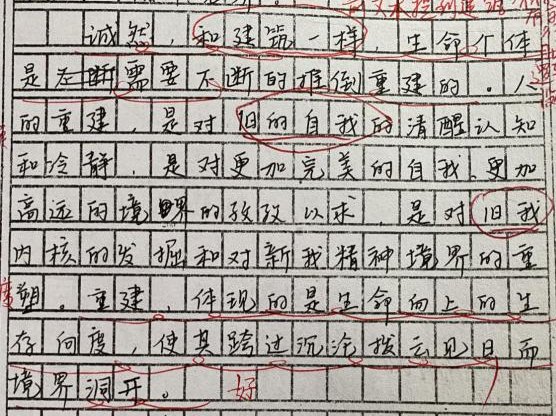 诚然，和建筑一样，生命个体
是在断需要不断的推倒重建的。人
的重建，是对旧的自我的清醒认知
和冷静，是对更加完美的自我、更加
高远的境界的孜孜以求，是对旧我
内核的发掘和对新我精神境界的重
塑。重建，体现的是生命向上的生
存向度，使其跨过沉沦拨云见日而
境界洞开。 好